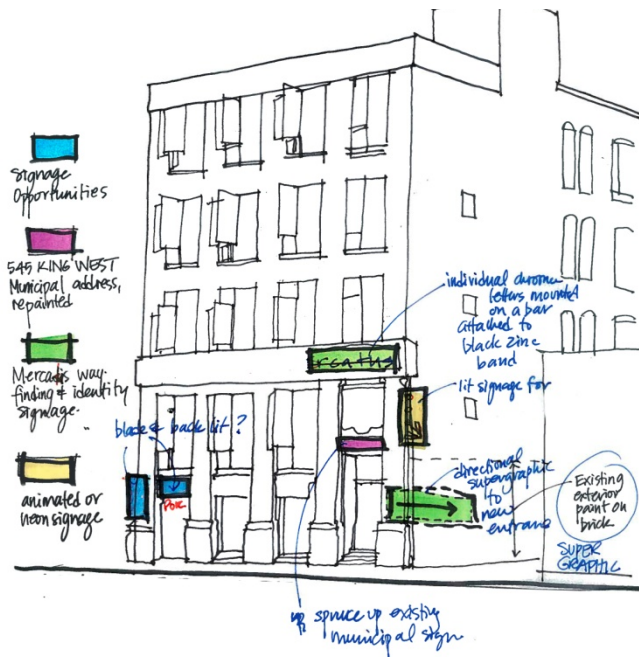 Signage
Opportunities
545 KING WEST
Municipal address,
repainted
way-
finding & identity
signage.
animated or
neon signage
back lit ?
individual chrome
letters mounted
on a bar
attached to
black zinc
band
lit signage for
directional
supergraphic
to
new
entrance
Existing
exterior
paint on
brick
SUPER
GRAPHIC
spruce up existing
municipal sign